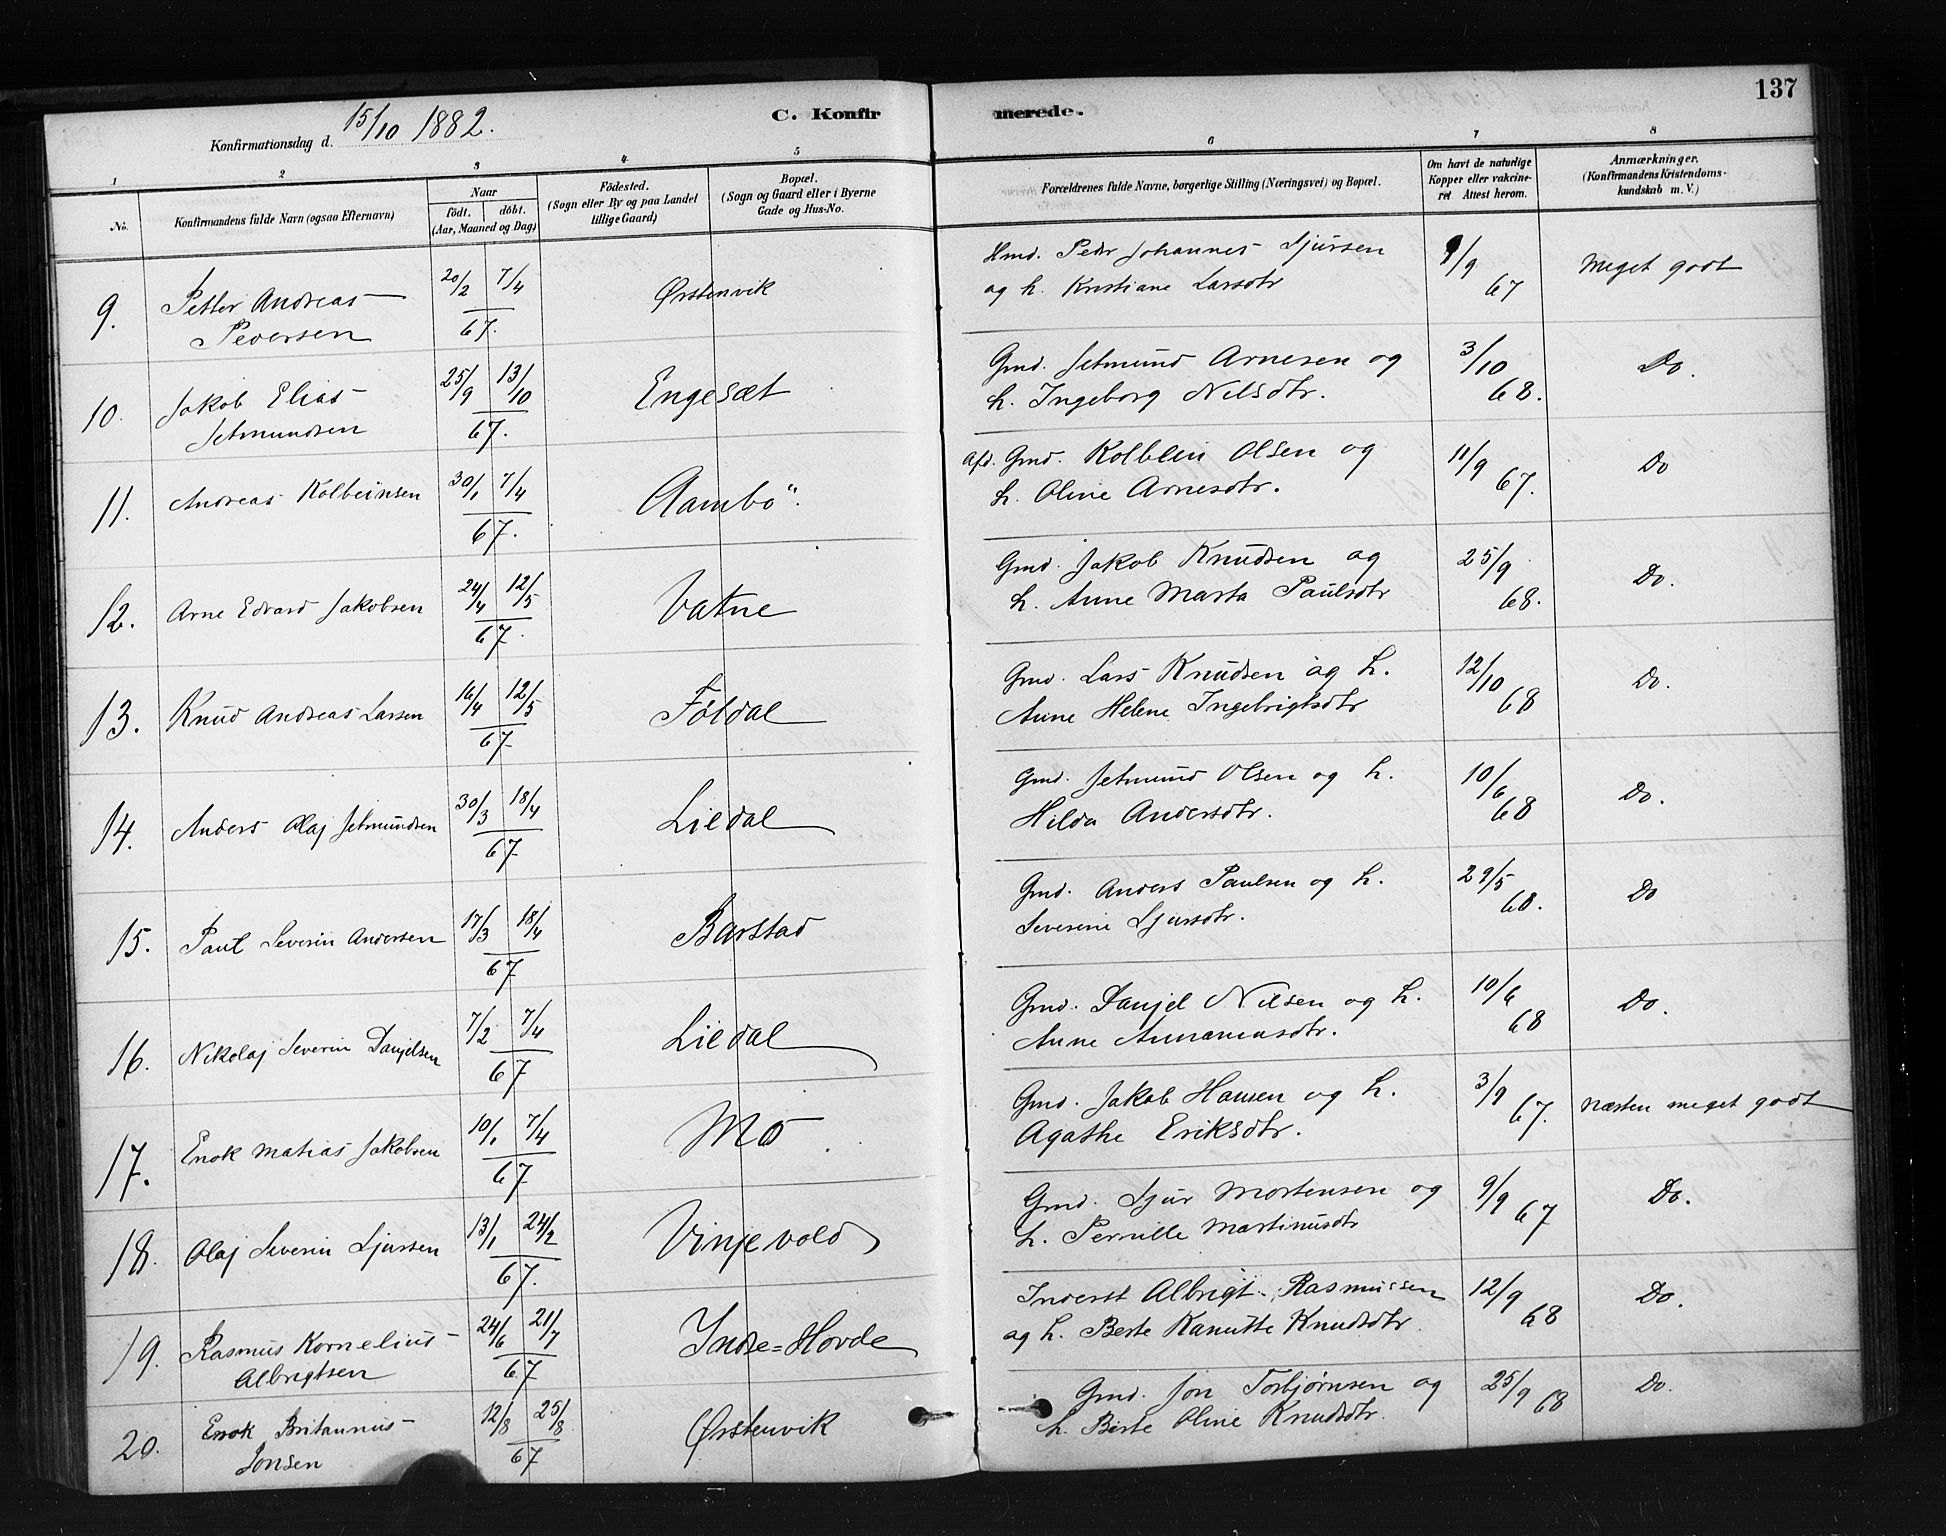 137
Konfirmationsdag d. 15/10 1882.
C. Konfirmerede.
1 2 3 4 5 6 7 8
No. Konfirmandens fulde Navn (ogsaa Efternavn) Naar født. døbt. (Aar, Maaned og Dag) Fødested. (Sogn eller By og paa Landet tillige Gaard) Bopæl. (Sogn og Gaard eller i Byerne Gade og Hus-No. Forældrenes fulde Navne, borgerlige Stilling (Næringsvei) og Bopæl. Om havt de naturlige Kopper eller vakcineret Attest herom. Anmærkninger. (Konfirmandens Kristendomskundskab m. V.)
9. Petter Andreas Pedersen 20/2 7/4 67. Ørstenvik Hmd. Peder Johannes Sjursen og h. Kristiane Larsdtr 9/9 67 Meget godt
10. Jakob Elias Jetmundsen 25/9 13/10 67. Engesæt Gmd. Jetmund Arnesen og h. Ingeborg Nilsdtr. 3/10 68. Do.
11. Andreas Kolbeinsen 30/1 7/4 67. Aambø. afd. Gmd. Kolbein Olsen og h. Oline Arnesdtr. 11/9 67. Do
12. Arne Edvard Jakobsen 24/4 12/5 67. Vatne Gmd. Jakob Knudsen og h. Anne Marta Paulsdtr 25/9 68. Do.
13. Knud Andreas Larsen 16/4 12/5 67. Føldal Gmd. Lars Knudsen og h. Anne Helene Ingebrigtsdtr 12/10 68 Do.
14. Anders Olaj Jetmundsen 30/3 18/4 67 Liedal Gmd. Jetmund Olsen og h. Hilda Andersdtr. 10/6 68 Do.
15. Paul Severin Andersen 17/3 18/4 67 Barstad Gmd. Anders Paulsen og h. Severine Sjursdtr. 29/5 68. Do
16. Nikolaj Severin Danjelsen 7/2 7/4 67 Liedal Gmd. Danjel Nilsen og h. Anne Annaniasdtr. 10/6 68 Do.
17. Enok Matias Jakobsen 10/1 7/4 67 Mo Gmd. Jakob Hansen og h. Agathe Eriksdtr. 3/9 67. næsten meget godt
18. Olaj Severin Sjursen 13/1 24/2 67. Vinjevold Gmd. Sjur Mortensen og h. Pernille Martinusdtr 9/9 67 Do.
19. Rasmus Kornelius Albrigtsen 24/6 21/7 67 Indre=Hovde Inderst Albrigt Rasmussen og h. Berte Kanutte Knudsdtr. 12/9 68 Do.
20. Enok Britannus Jonsen 12/8 25/8 67 Ørstenvik Gmd. Jon Torbjørnsen og h. Berte Oline Knudsdtr. 25/9 68 Do.